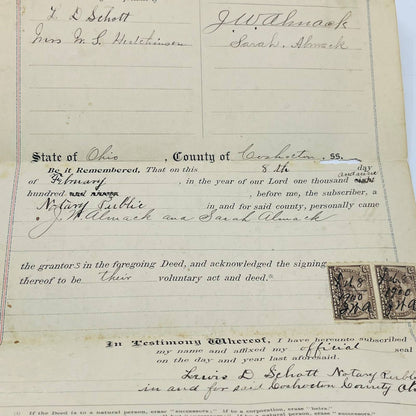 L D Schott
Mrs M. S. Hutchinson
J. W. Almack
Sarah Almack
State of Ohio, County of Coshocton, ss.
Be it Remembered, That on this 8th day
of February, in the year of our Lord one thousand
hundred, before me, the subscriber, a
Notary Public in and for said county, personally came
J. W. Almack and Sarah Almack
the grantors in the foregoing Deed, and acknowledged the signing
thereof to be their voluntary act and deed.
In Testimony Whereof, I have hereunto subscribed
my name and affixed my official seal
on the day and year last aforesaid.
Lewis D. Schott Notary Public
in and for said Coshocton County
(1) If the Deed is to a natural person, erase "successors," if to a corporation, erase "heirs."